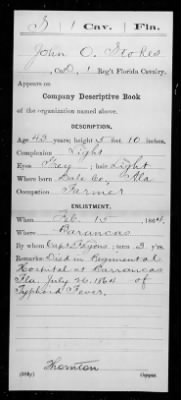 S | 1 | Cav. | Fla.
John O. Stokes
, Co. D, 1 Reg't Florida Cavalry.
Appears on
Company Descriptive Book
of the organization named above.
DESCRIPTION.
Age 43 years; height 5 feet 10 inches.
Complexion Light
Eyes Grey; hair Light
Where born Dale Co, Ala
Occupation Farmer
ENLISTMENT.
When Feb. 15, 1864.
Where Barancas
By whom Capt. Lyons; term 3 y'rs.
Remarks: Died in Regimental
Hospital at Barrancas
Fla. July 26, 1864 of
Typhoid Fever.
Thornton
Copyist.